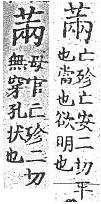 㒼
亡珍亡安二切平
也當也欲明也
㒼
母官亡珍二切
無穿孔狀也